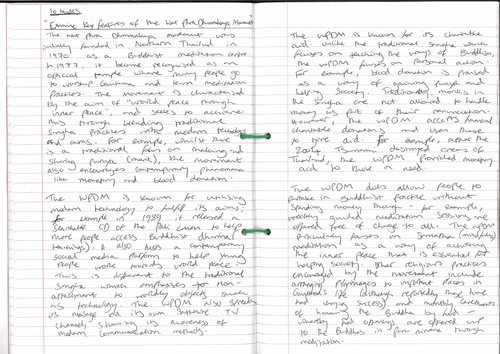 10 marks
"Examine key features of the Wat Phra Dhammakaya Movement
The Wat Phra Dhammakaya movement was
initially founded in Northern Thailand in
1970 as a Buddhist meditation centre.
In 1977, it became recognised as an
official temple where many people go
to worship Gautama and learn meditation
practices. The movement is characterised
by the aim of 'world peace through
inner peace', and seeks to achieve
this through blending traditional
Sangha practices with modern
and aims. For example, whilst there
is a traditional focus on making and
sharing punya (merit), the movement
also encourages contemporary phenomena
like monetary and blood donation.
The WPDM is known for utilising
modern technology to fulfil its aims;
for example in 1989 it released a
CD of the Pali Canon to help
more people access Buddhist dhamma (
teachings). It also hosts a contemporary
social media platform to help
people work towards world peace.
This is different to the traditional
Sangha which emphasises to non-
attachment to worldly objects such
as technology. The WPDM also spreads
its message via its own Satellite TV
channel, showing its awareness of
modern communication methods.
The WPDM is known for its charitable
aid. Unlike the traditional Sangha which
focuses on teaching the ways of Buddhism,
the WPDM focuses on personal action.
For example, blood donation is praised
as a way of gaining punya and
helping society. Traditionally, monks in
the Sangha are not allowed to handle
money as part of their renunciation.
However, the WPDM accepts
charitable donations and uses these
to give aid. For example, after the
2004 Tsunami destroyed areas of
Thailand, the WPDM provided monetary
aid to those in need.
The WPDM does allow people to
partake in Buddhist practice without
spending money though - for example,
weekly guided meditation sessions are
offered free of charge to all. The WPDM
particularly focuses on
meditation as a way of achieving
the inner peace that is essential for
helping society. Other religious practices
encouraged by the movement include
arranging pilgrimages to important places in
Gautama's life (although reportedly these have
not always success) and monthly ceremonies
of honouring the Buddha by food -
worship and offerings are offered up
to the Buddhas in pure nirvana through
meditation.